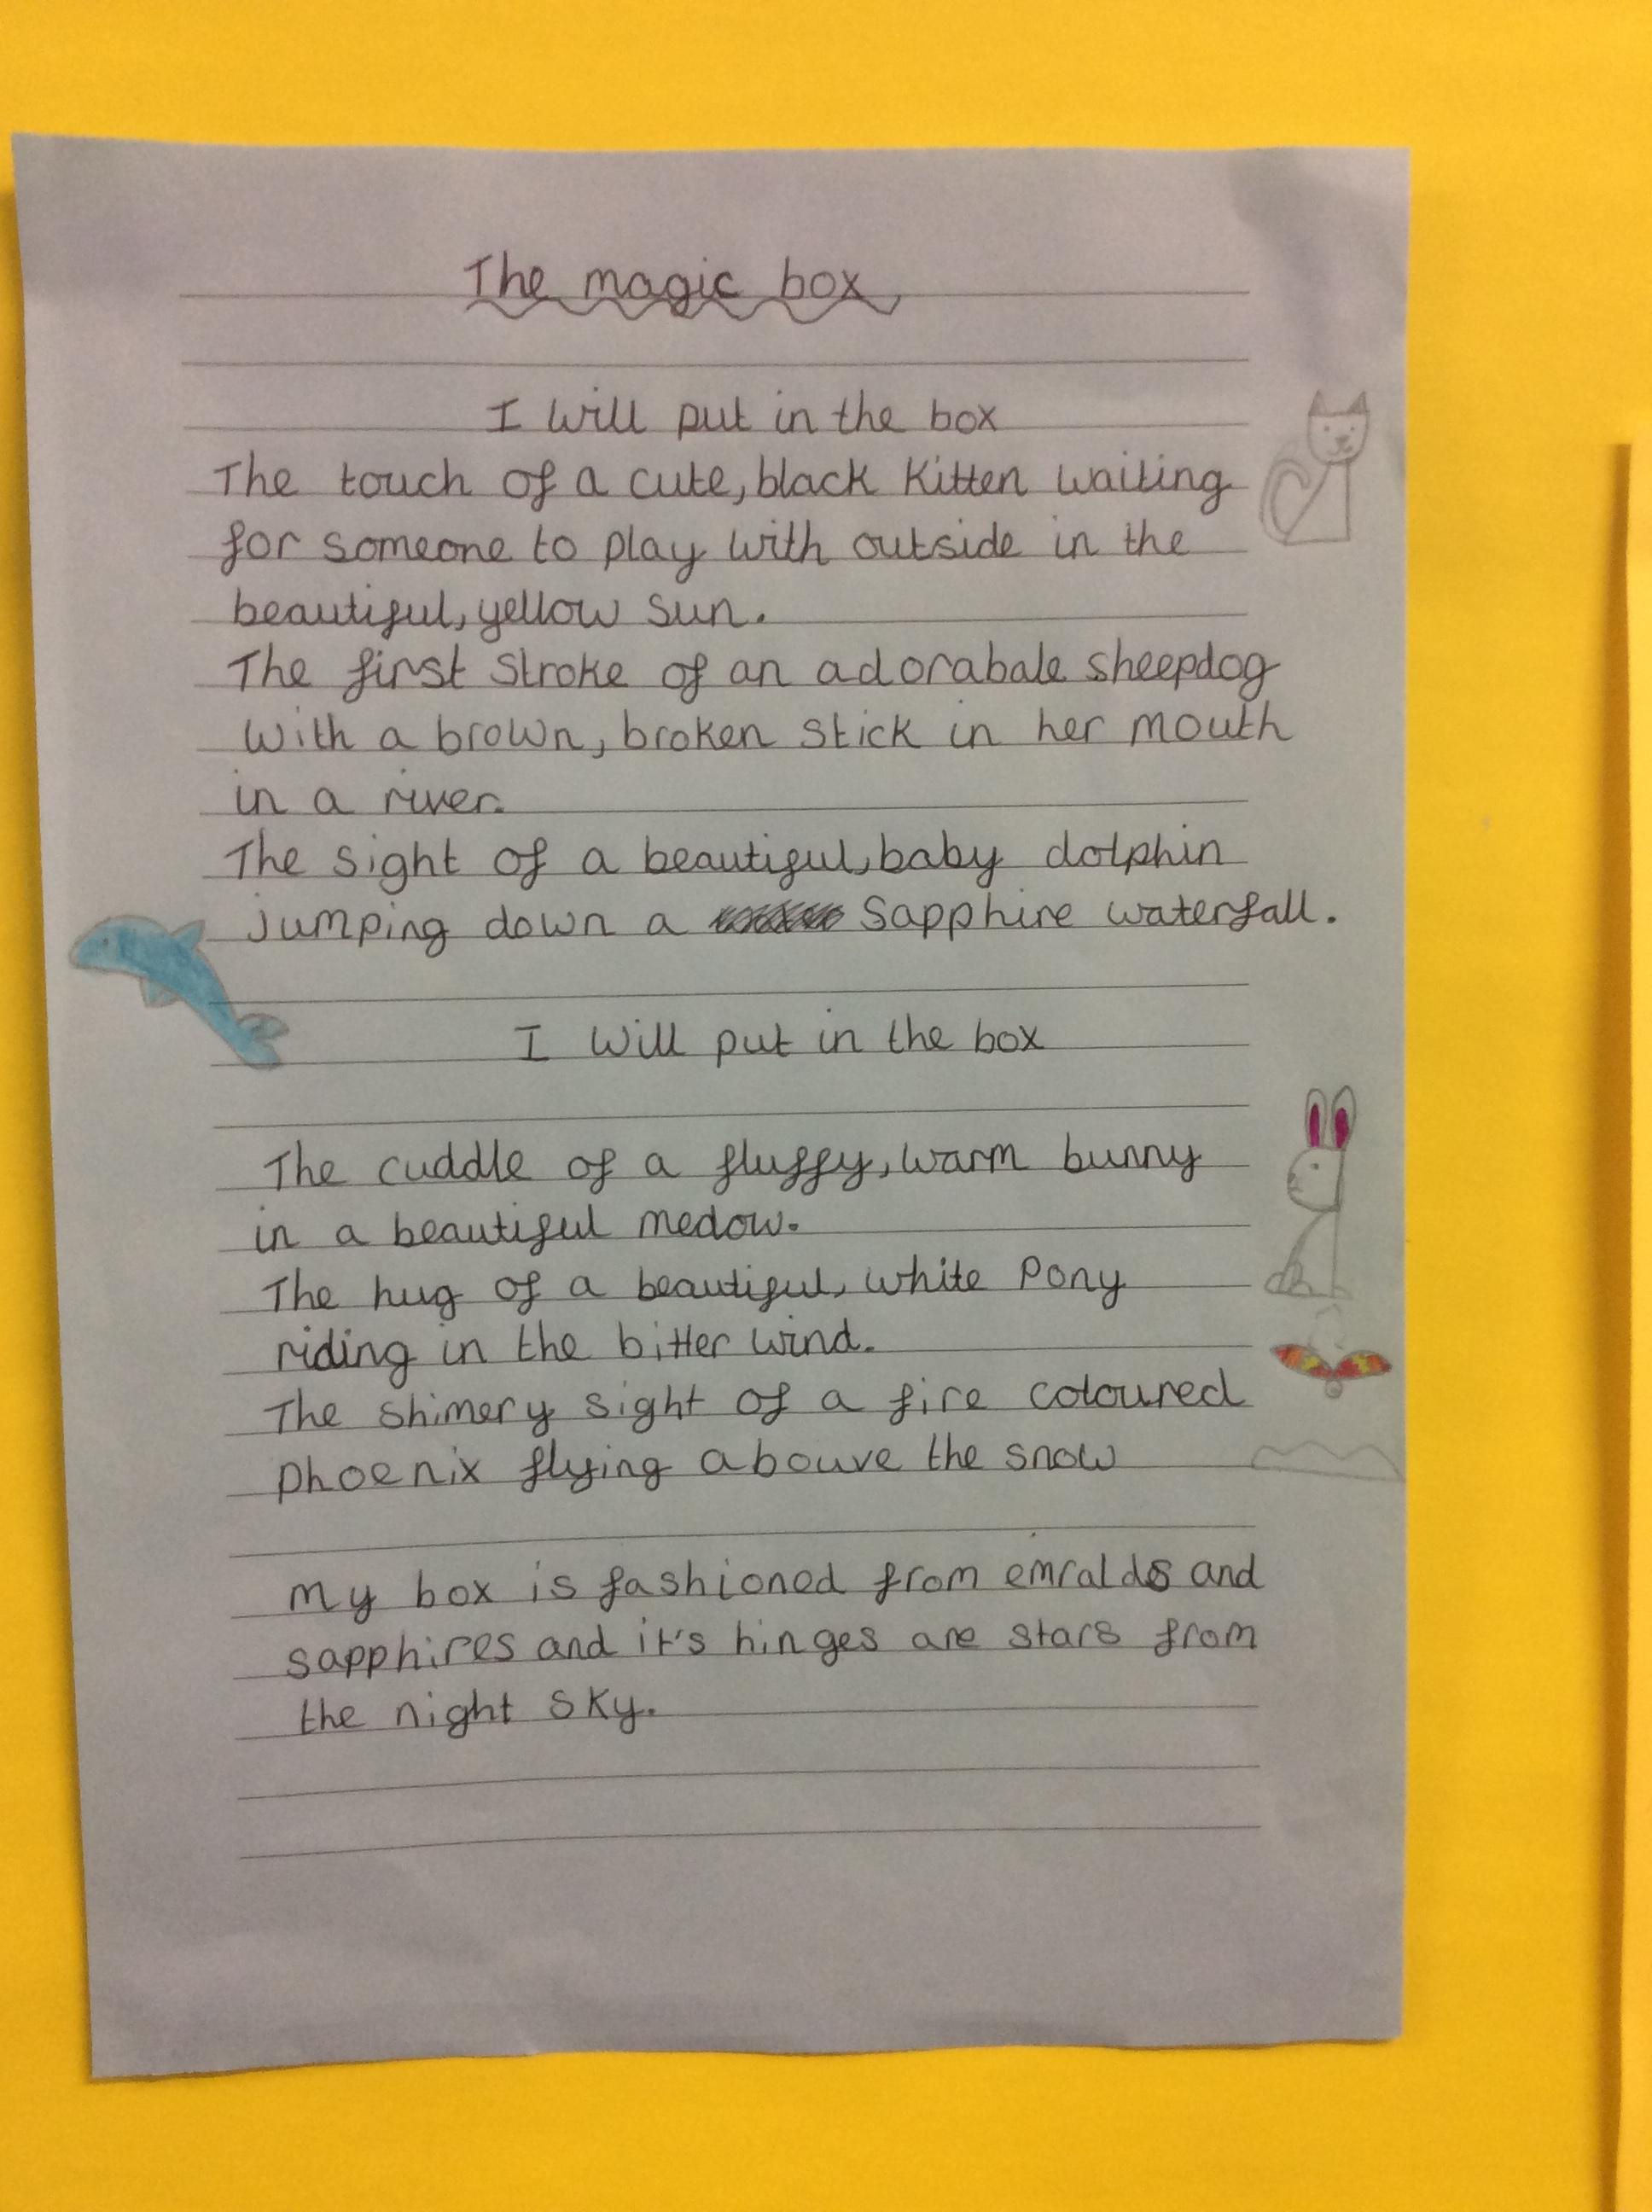 The magic box
I will put in the box
The touch of a cute, black kitten waiting
for someone to play with outside in the
beautiful, yellow sun.
The first stroke of an adorabale sheepdog
with a brown, broken stick in her mouth
in a river.
The sight of a beautiful, baby dolphin
jumping down a sapphire waterfall.
I will put in the box
The cuddle of a fluffy, warm bunny
in a beautiful medow.
The hug of a beautiful, white pony
riding in the bitter wind.
The shimery sight of a fire coloured
phoenix flying abouve the snow
My box is fashioned from emralds and
sapphires and it's hinges are stars from
the night sky.